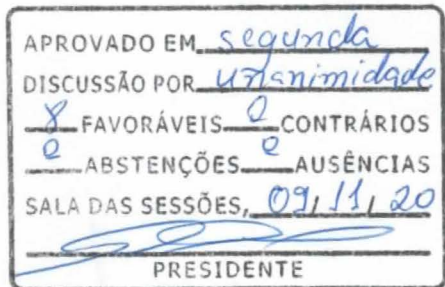 APROVADO EM segunda
DISCUSSÃO POR unanimidade
8 FAVORÁVEIS 0 CONTRÁRIOS
0 ABSTENÇÕES 0 AUSÊNCIAS
SALA DAS SESSÕES, 09/11/20
PRESIDENTE